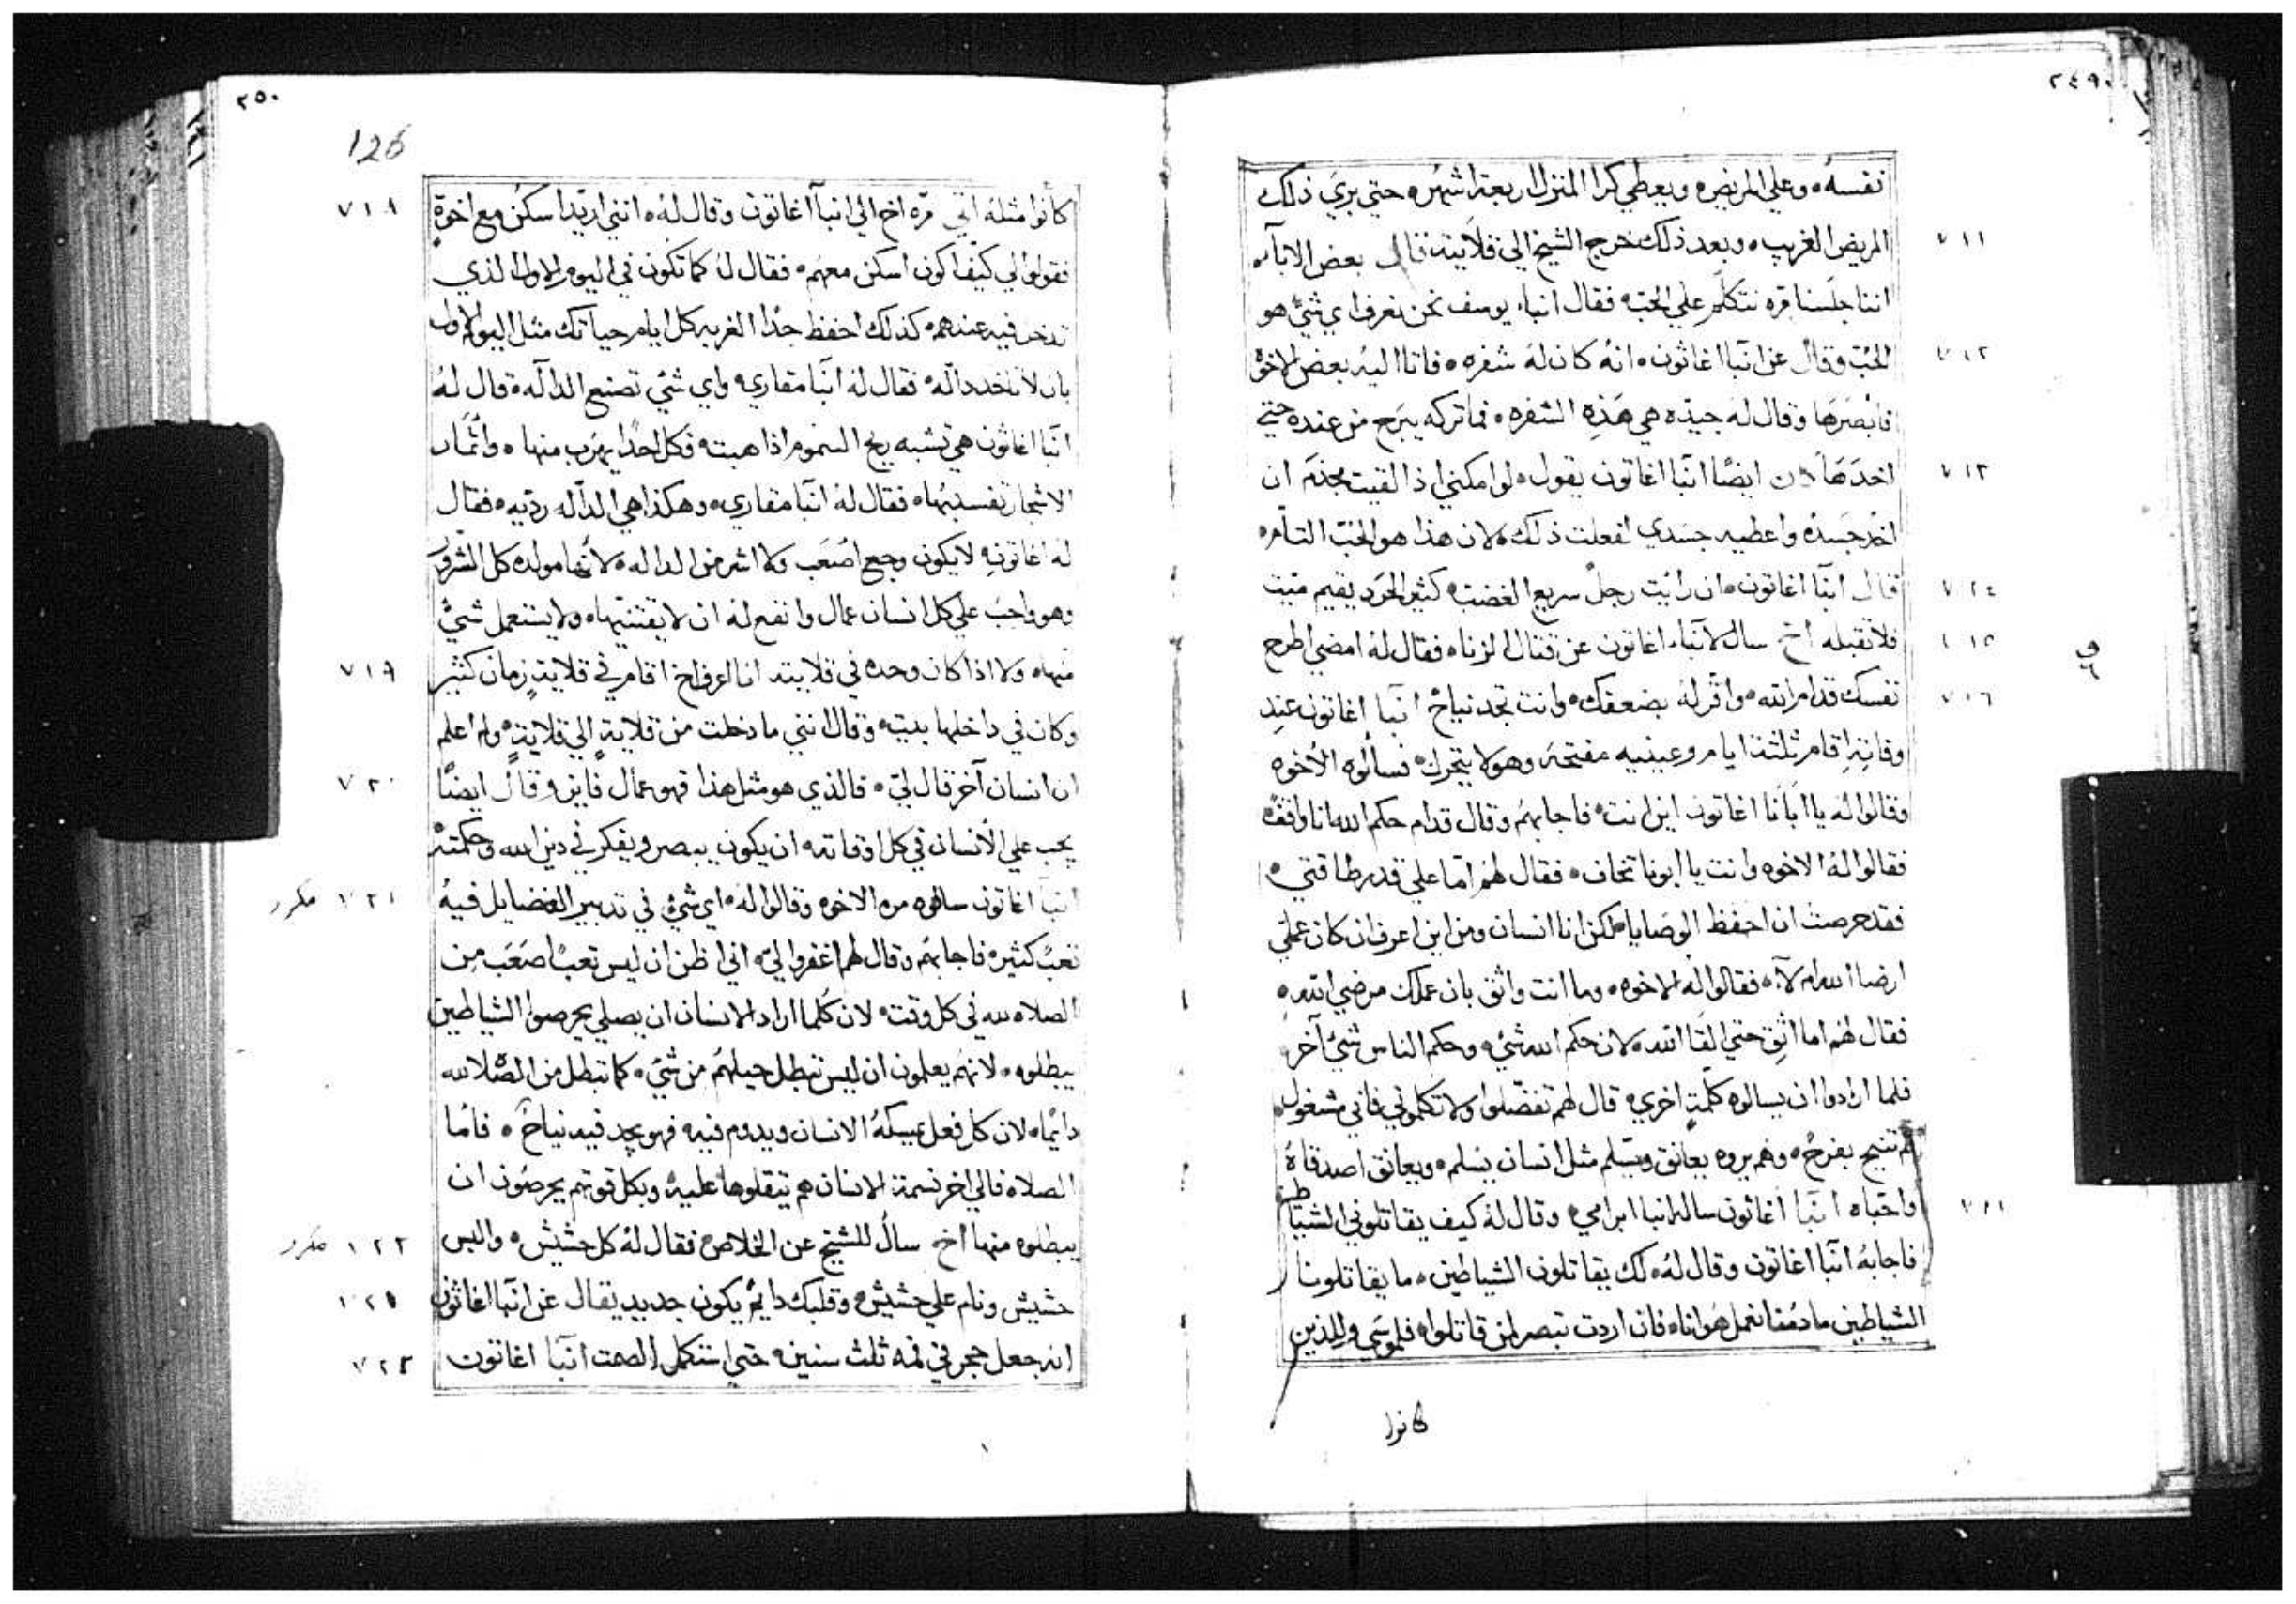 ٢٤٩
نفسه ٥ وعلي المريض ٥ ويعطي كرا المنزل اربعة اشهر ٥ حتي بري ذلك
المريض الغريب ٥ وبعد ذلك خرج الشيخ الي قلايته قال بعض الابآء ٧١١
اننا جلسنا مره نتكلم علي المحبه فقال انباء يوسف نحن نعرف اي شي هو
الحب وقال عن انبا اغاثون ٥ انه كان له شفره ٥ فاتا اليه بعض الاخوة ٧١٢
فابصرها وقال له جيده هي هذه الشفره ٥ فما تركه يبرح من عنده حتي
اخدها ايضا انبا اغاتون يقول ٥ لو امكنني اذ القيت مجذم ان ٧١٣
اخد جسده واعطيه جسدي لفعلت ذلك ٥ لان هذا هو الحب التآم ٥
قال انبا اغاتون ٥ ان رايت رجل سريع الغضب ٥ كثير الحرد يقيم ميت ٧١٤
فلا تقبله اخ سال لآنباء اغاتون عن قتال الزنا ٥ فقال له امضي اطرح ٧١٥
نفسك قدام الله ٥ واقر له بضعفك ٥ وانت تجد نياح انبا اغاتون عند ٧١٦
وفاته اقام ثلثة ايام وعينيه مفتحه وهو لا يتحرك ٥ فسالوه الاخوه
وقالوا له يا ابانا اغاتون اين انت ٥ فاجابهم وقال قدام حكم الله انا واقف ٥
فقالوا له الاخوه وانت يا ابونا تخاف ٥ فقال لهم اما علي قدر طاقتي ٥
فقد حرصت ان احفظ الوصايا ٥ لكن انا انسان ومن اين اعرف ان كان عملي
ارضا الله ام لآ ٥ فقالوا له الاخوه ٥ وما انت واثق بان عملك مرضي الله ٥
فقال لهم اما اثق حتي القا الله ٥ لان حكم الله شي ٥ وحكم الناس شي آخر
فلما ارادوا ان يسالوه كلمة اخري ٥ قال لهم تفضلوا ولا تكلموني فاني مشغول ٥
ثم تنيح بفرح ٥ وهم يروه يعانق ويسلم مثل انسان يسلم ٥ ويعانق اصدقاه
واحباه انبا اغاثون ساله انبا ابرامي ٥ وقال له كيف يقاتلوني الشياطين ٧١٧
فاجابه انبا اغاتون وقال له ٥ لك يقاتلون الشياطين ٥ ما يقاتلونا
الشياطين ما دمنا نعمل هوانا ٥ فان اردت تبصر لمن قاتلوا ٥ فلموسي وللذين
كانوا
٢٥٠
126
كانوا مثله اتي مره اخ الي انبآ اغاتون وقال له ٥ انني اريد اسكن مع اخوة ٧١٨
فقولوا لي كيف اكون اسكن معهم ٥ فقال له كما تكون في اليوم الاول الذي
تدخل فيه عندهم ٥ كذلك احفظ حدا الغربه كل ايام حياتك مثل اليوم الاول
بان لا تتخد دالّه ٥ فقال له انبا مقاري ٥ واي شي تصنع الدالّه ٥ قال له
انبا اغاثون هي تشبه ريح السموم اذا هبت ٥ فكل احدا يهرب منها ٥ واثمار
الاشجار تفسدها ٥ فقال له انبا مقاري ٥ وهكذا هي الدالّه رديه ٥ فقال
له اغاتون ٥ لا يكون وجع اصعب ولا اشر من الداله ٥ لانها مولده كل الشرور
وهو واجب علي كل انسان عمال وانفع له ان لا يقتنيها ٥ ولا يستعمل شي
منها ٥ ولا اذا كان وحده في قلايته انا اعرف اخ اقام في قلاية زمان كثير ٧١٩
وكان في داخلها بيت ٥ وقال انني ما دخلت من قلاية الي قلاية ٥ ولم اعلم
ان انسان آخر قال لي ٥ فالذي هو مثل هذا فهو عمال فايز وقال ايضا ٧٢٠
يجب علي الانسان في كل اوقاته ان يكون يبصر ويفكر في دين الله وحكمته
انبا اغاتون سالوه مره الاخوه وقالوا له ٥ اي شي في تدبير الفضايل فيه ٧٢١ مكرر
تعب كثير ٥ فاجابهم وقال لهم اغفروا لي ٥ اني اظن ان ليس تعب اصعب من
الصلاه لله في كل وقت ٥ لان كلما اراد الانسان ان يصلي يحرصوا الشياطين
يبطلوه ٥ لانهم يعلمون ان ليس تبطل حيلهم من شي ٥ كما تبطل من الصلا لله
دايما ٥ لان كل فعل يمسكه الانسان ويدوم فيه فهو يجد فيه نياح ٥ فاما
الصلاه فالي اخر نسمة الانسان هم يثقلوها عليه ٥ وبكل قوتهم يحرصون ان
يبطلوه منها اخ سال للشيخ عن الخلاص فقال له كل حشيش ٥ والبس ٧٢٢ مكرر
حشيش ونام علي حشيش ٥ وقلبك دايم يكون حديد يقال عن انبا اغاثون
انه جعل حجر في فمه ثلث سنين ٥ حتي استكمل الصمت انبا اغاتون